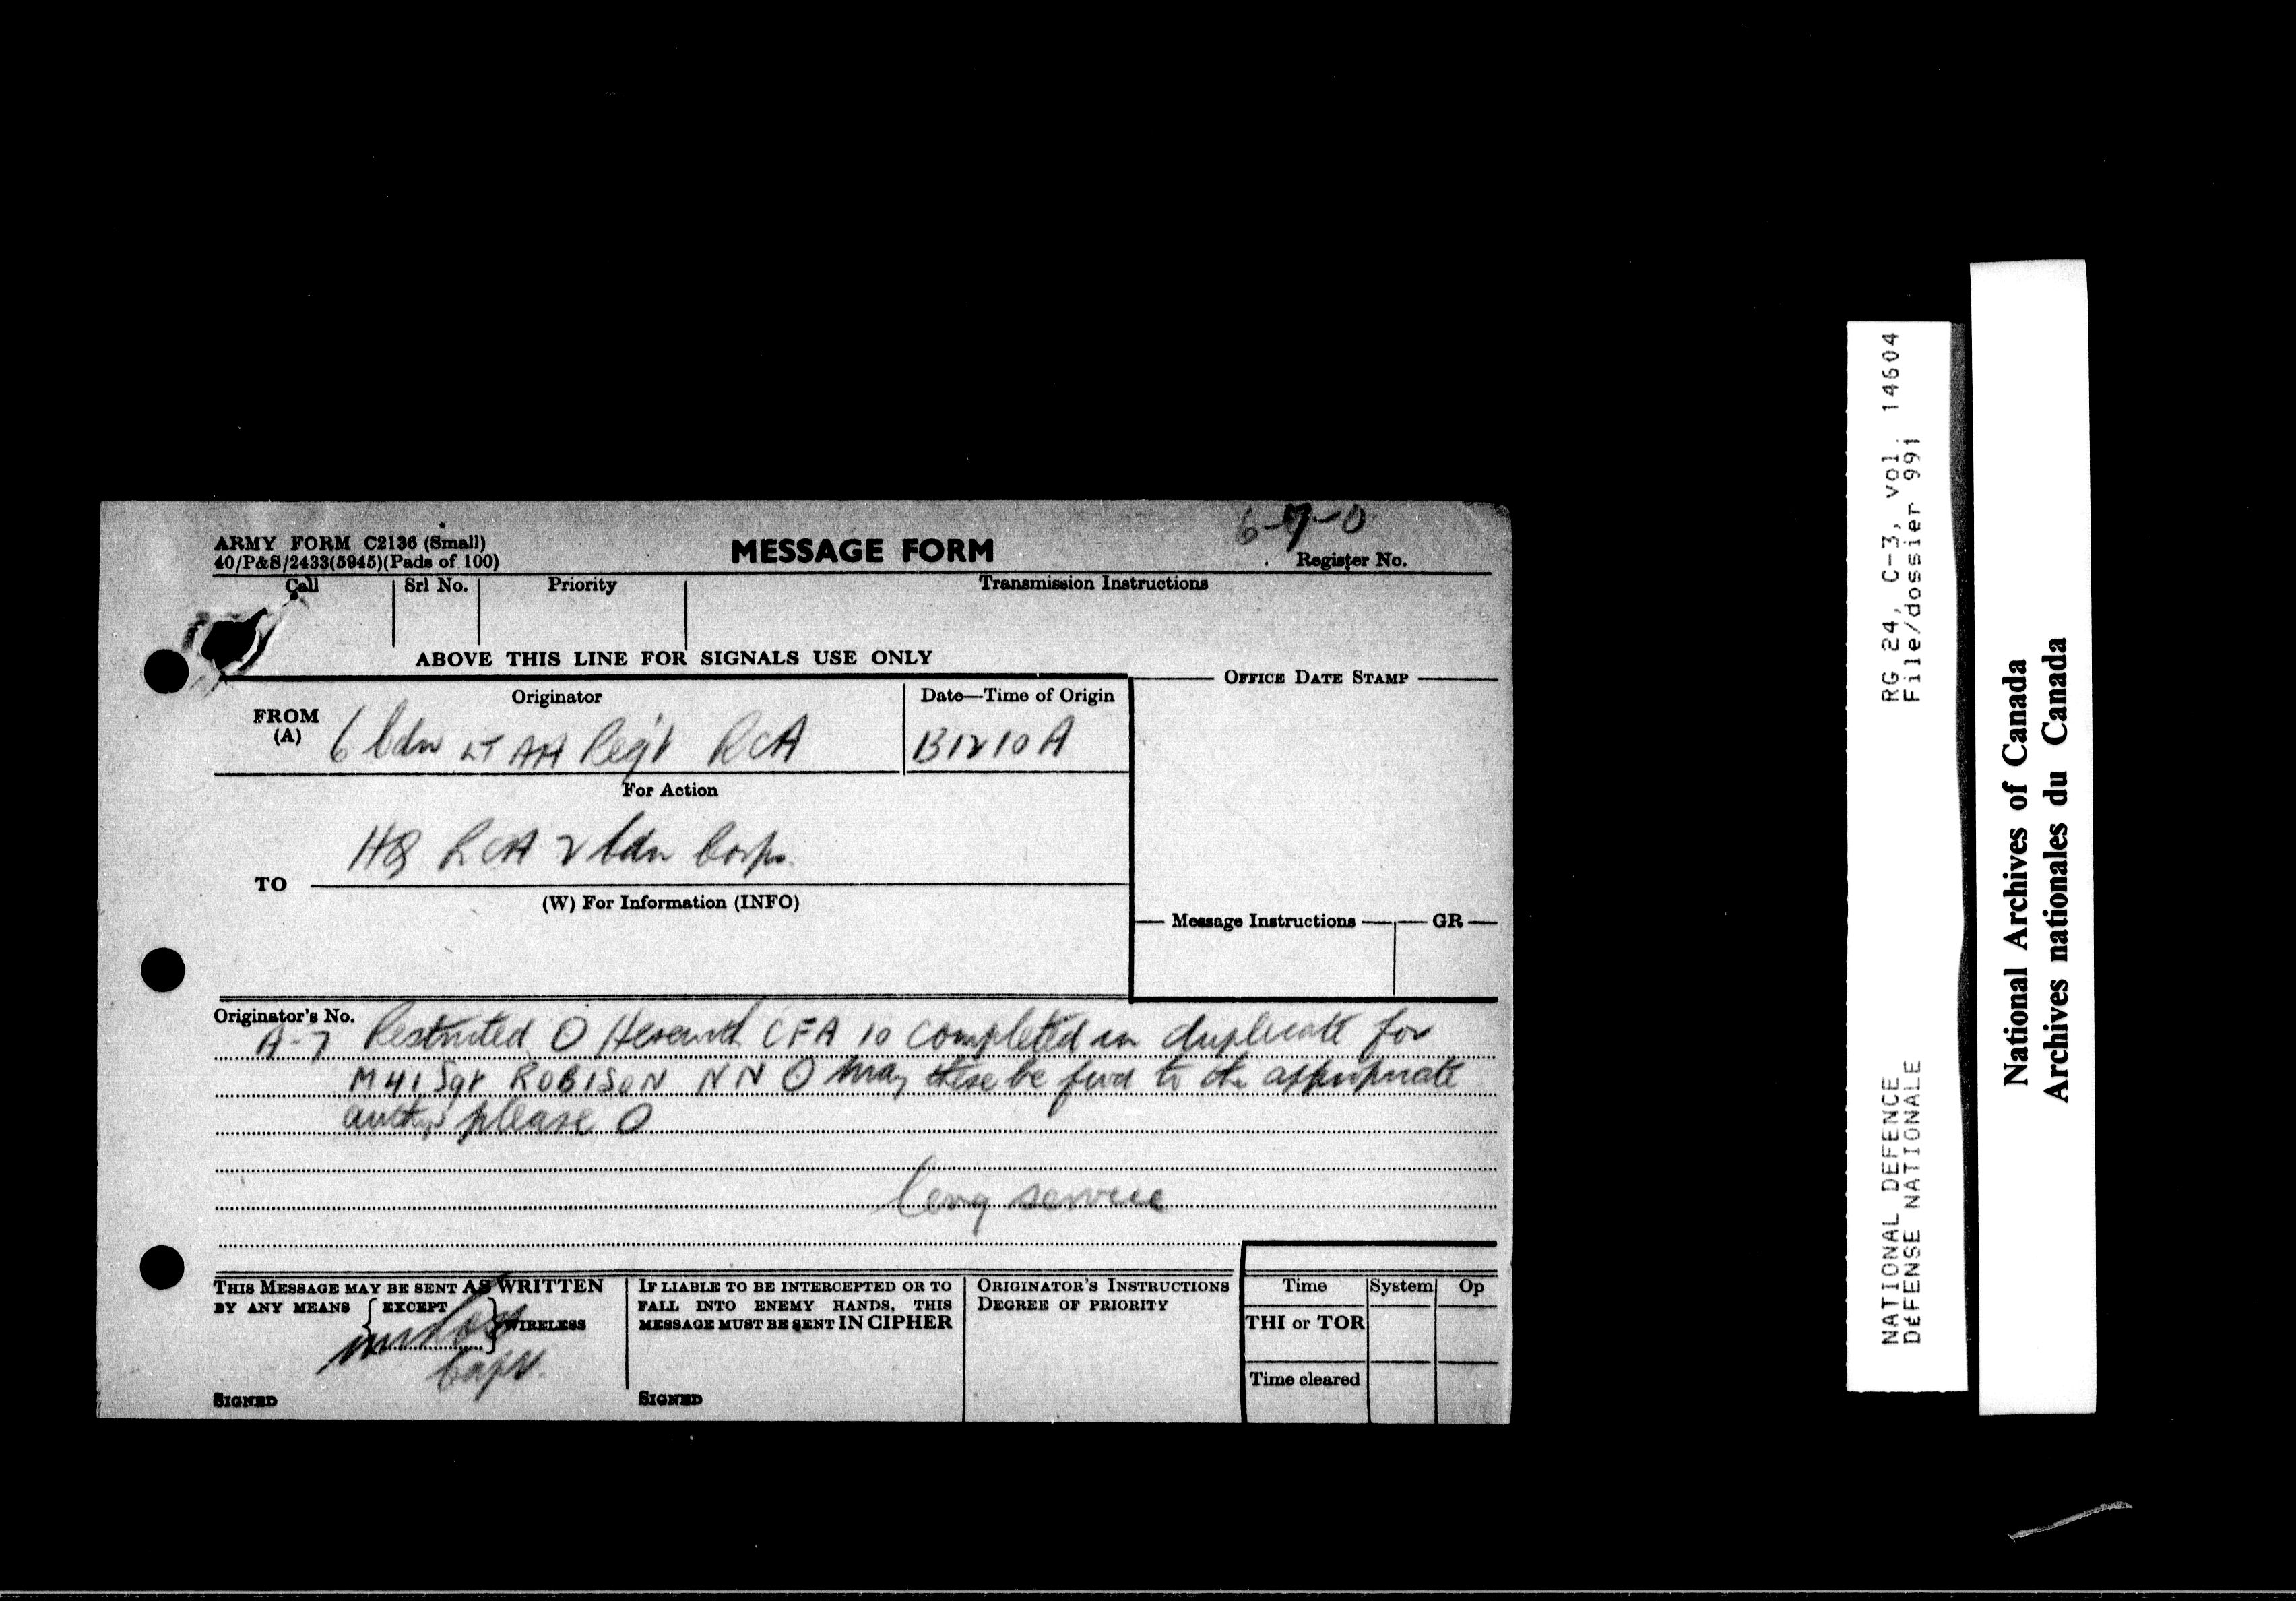 6-7-0
ARMY FORM C2136 (Small)
40/P&S/2433(5945)(Pads of 100)
MESSAGE FORM
Register No.
Call
Srl No.
Priority
Transmission Instructions
ABOVE THIS LINE FOR SIGNALS USE ONLY
OFFICE DATE STAMP
FROM (A)
Originator
Date—Time of Origin
6 Cdn LT AA Regt RCA
131210A
For Action
HQ RCA 2 Cdn Corps.
TO
(W) For Information (INFO)
Message Instructions
GR
Originator's No.
A-7 Restricted O Herewith CFA 10 completed in duplicate for
M41 Sgt ROBISON NN O May these be fwd to the appropriate
auth please O
Long service
THIS MESSAGE MAY BE SENT AS WRITTEN
BY ANY MEANS { EXCEPT } WIRELESS
Capt.
SIGNED
IF LIABLE TO BE INTERCEPTED OR TO
FALL INTO ENEMY HANDS, THIS
MESSAGE MUST BE SENT IN CIPHER
SIGNED
ORIGINATOR'S INSTRUCTIONS
DEGREE OF PRIORITY
Time
System
Op
THI or TOR
Time cleared
NATIONAL DEFENCE RG 24, C-3, vol. 14604
DEFENSE NATIONALE File/dossier 991
National Archives of Canada
Archives nationales du Canada